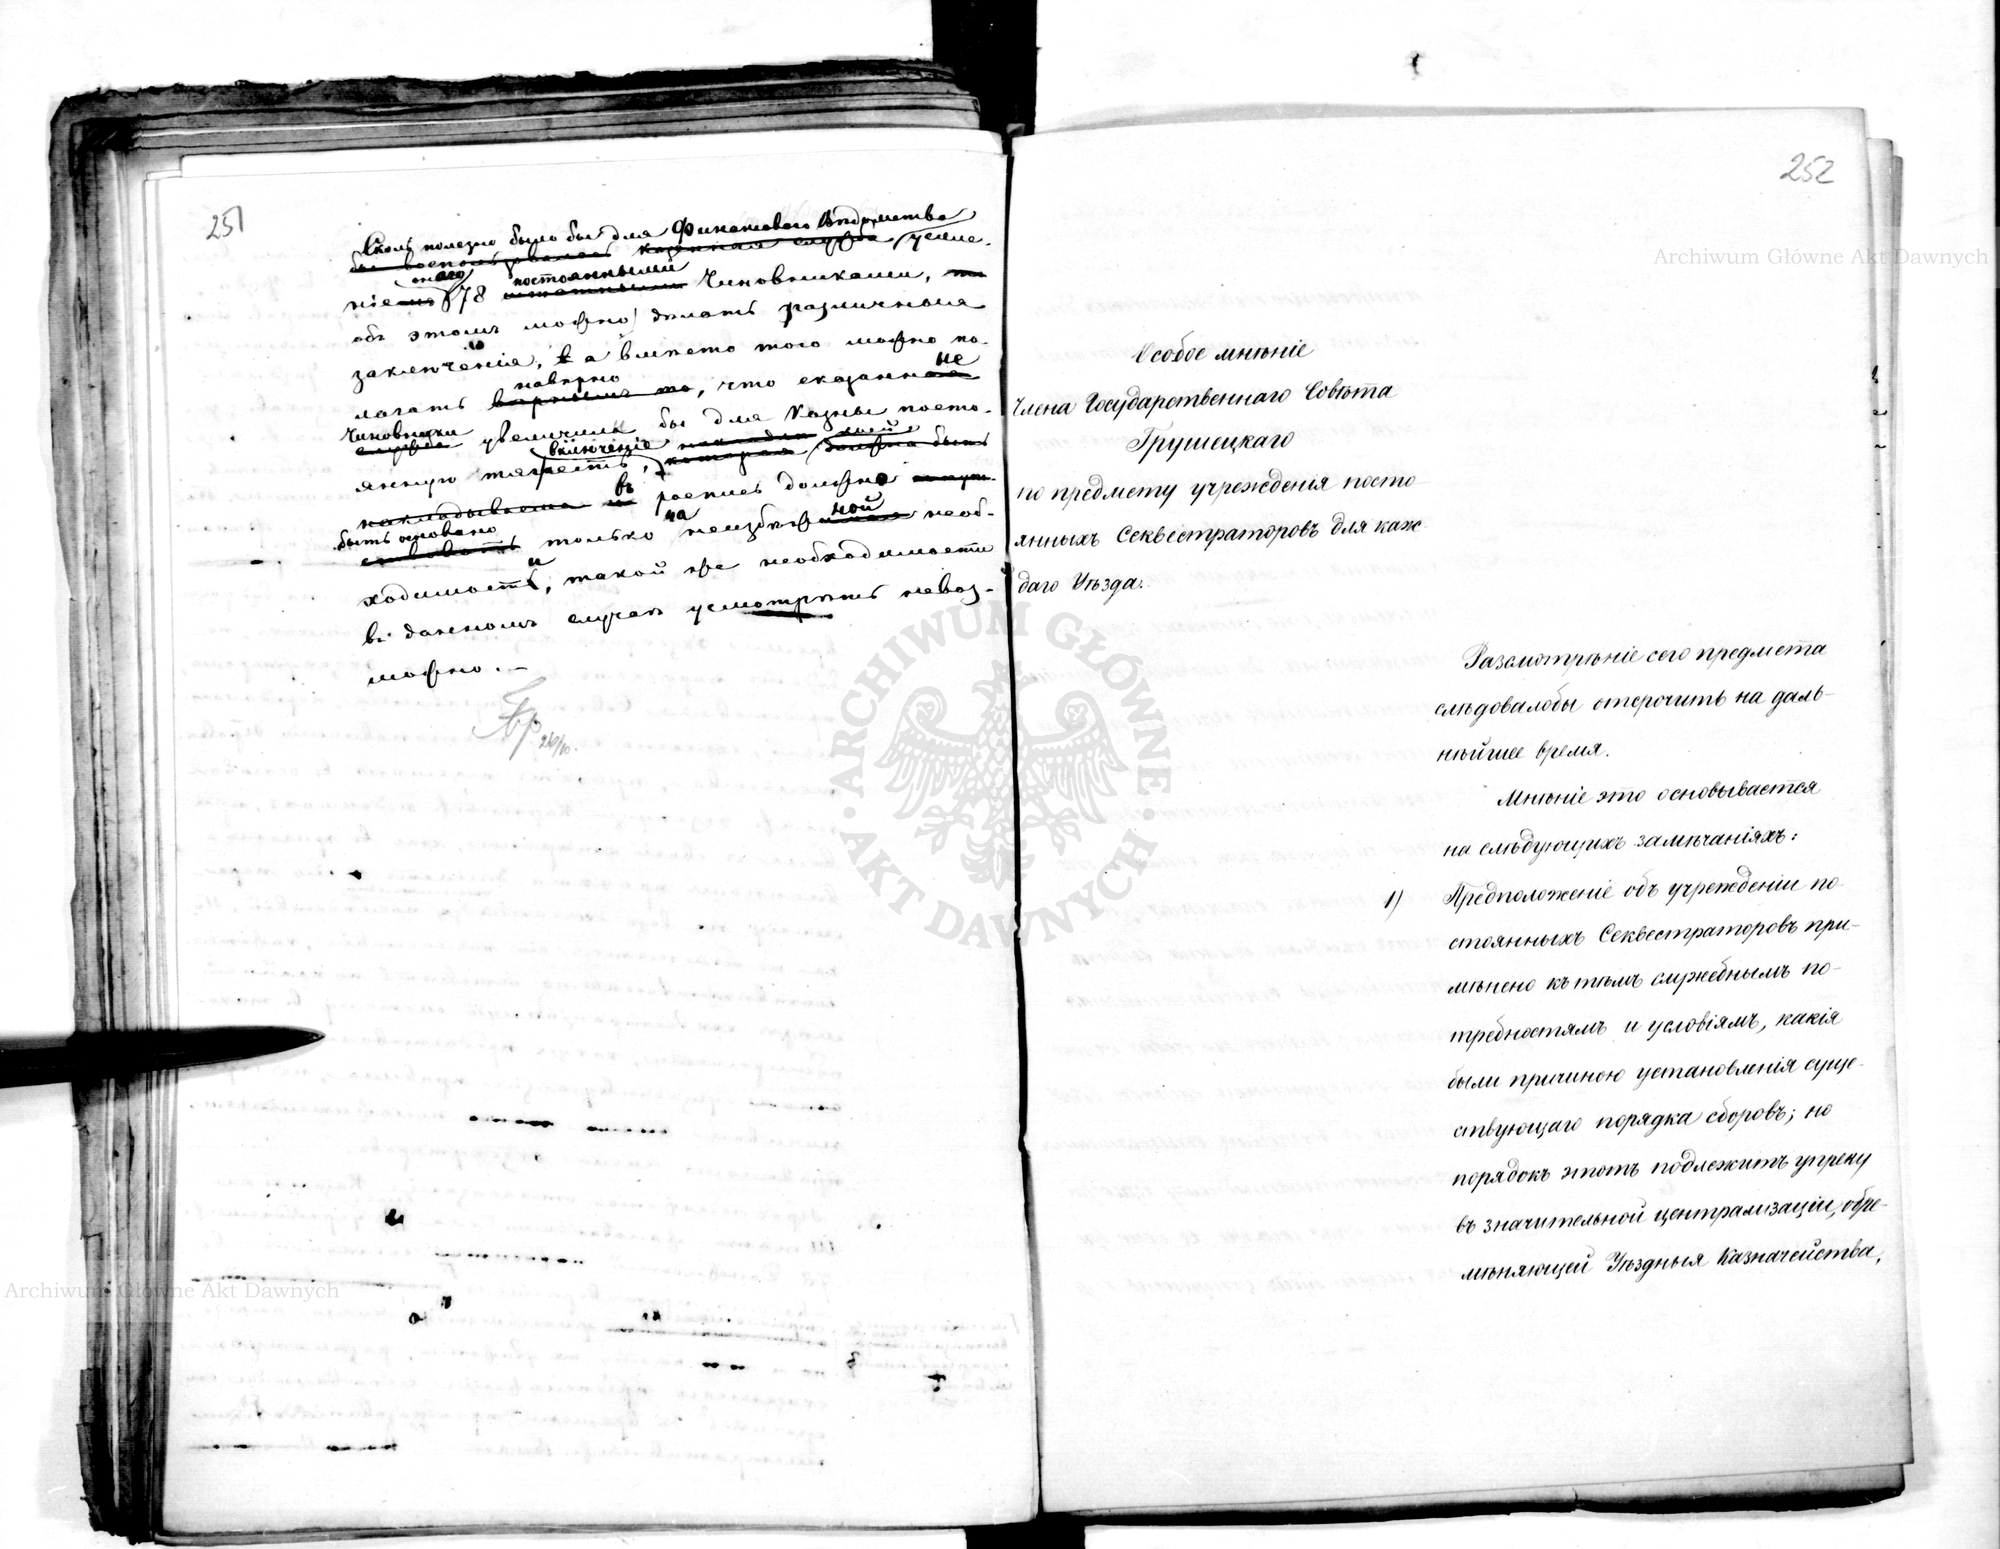 251
Сколь полезно было бы для Финансоваго Ведомства
бы воспользовалась казенная служба, усиле-
ніе онаго 78 постоянными штатными Чиновниками, то
объ этомъ можно делать различныя
заключенія, а вместо того можно по-
лагать наверно вернымъ то, что сказанные
Чиновники служба увеличила бы для Казны посто-
янную тягость, включеніе коей которая должна быть
накладываема въ роспись должно
быть основано только на неизбежной необ-
ходимости, такой же необходимости
въ данномъ случае усмотреть невоз-
можно. —
26/10.
252
Особое мнѣніе
Члена Государственнаго Совѣта
Грушецкаго
по предмету учрежденія посто-
янныхъ Секвестраторовъ для каж-
даго Уѣзда.
Разсмотрѣніе сего предмета
слѣдовалобы отсрочить на даль-
нѣйшее время.
Мнѣніе это основывается
на слѣдующихъ замѣчаніяхъ:
1) Предположеніе объ учрежденіи по-
стоянныхъ Секвестраторовъ при-
мѣнено къ тѣмъ служебнымъ по-
требностямъ и условіямъ, какія
были причиною установленія суще-
ствующаго порядка сборовъ; но
порядокъ этотъ подлежитъ упреку
въ значительной централизаціи, обре-
мѣняющей Уѣздныя Казначейства,
Archiwum Główne Akt Dawnych
Archiwum Główne Akt Dawnych
ARCHIWUM GŁÓWNE · AKT DAWNYCH ·